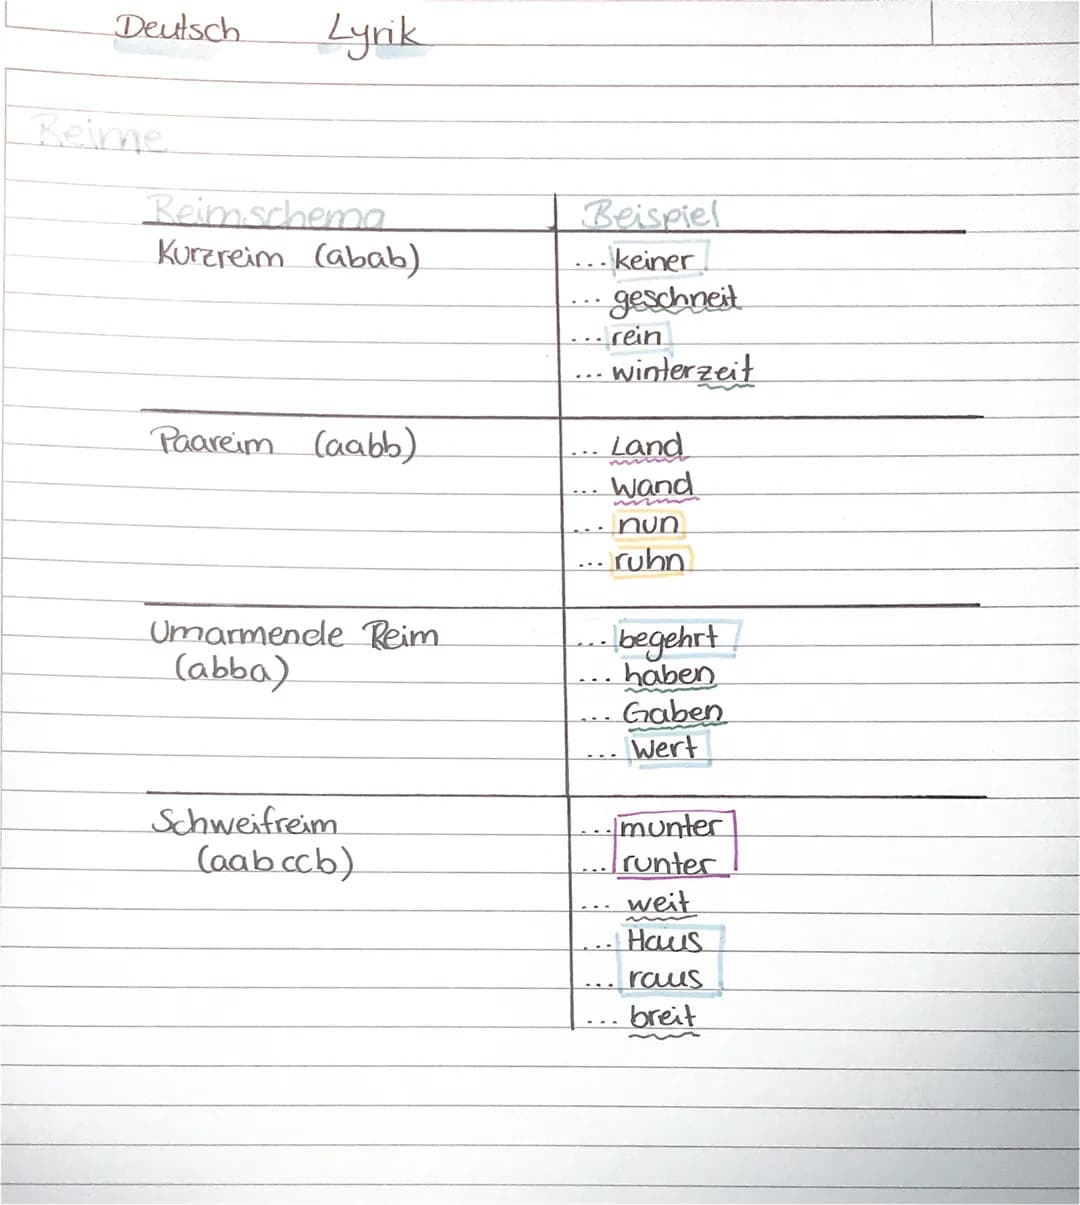 Deutsch Lyrik
Reime
Reimschema Beispiel
Kurzreim (abab) ... keiner
... geschneit
... rein
... winterzeit
Paareim (aabb) ... Land
... Wand
... nun
... ruhn
Umarmende Reim ... begehrt
(abba) ... haben
... Gaben
... Wert
Schweifreim ... munter
(aabccb) ... runter
... weit
... Haus
... raus
... breit